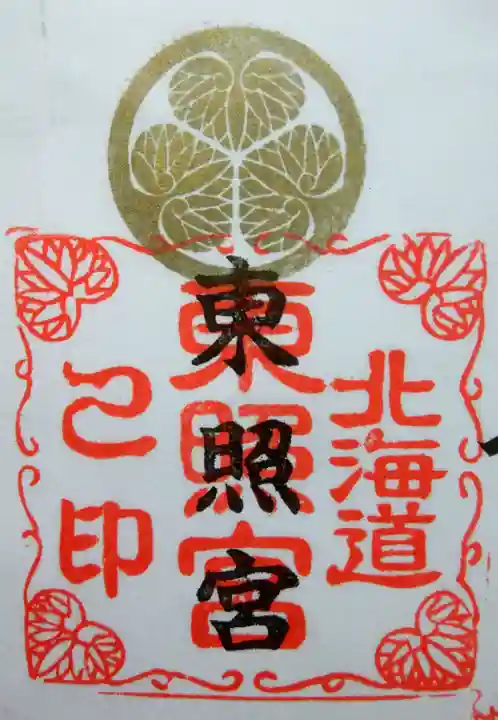 北海道
東照宮
東照宮
之印